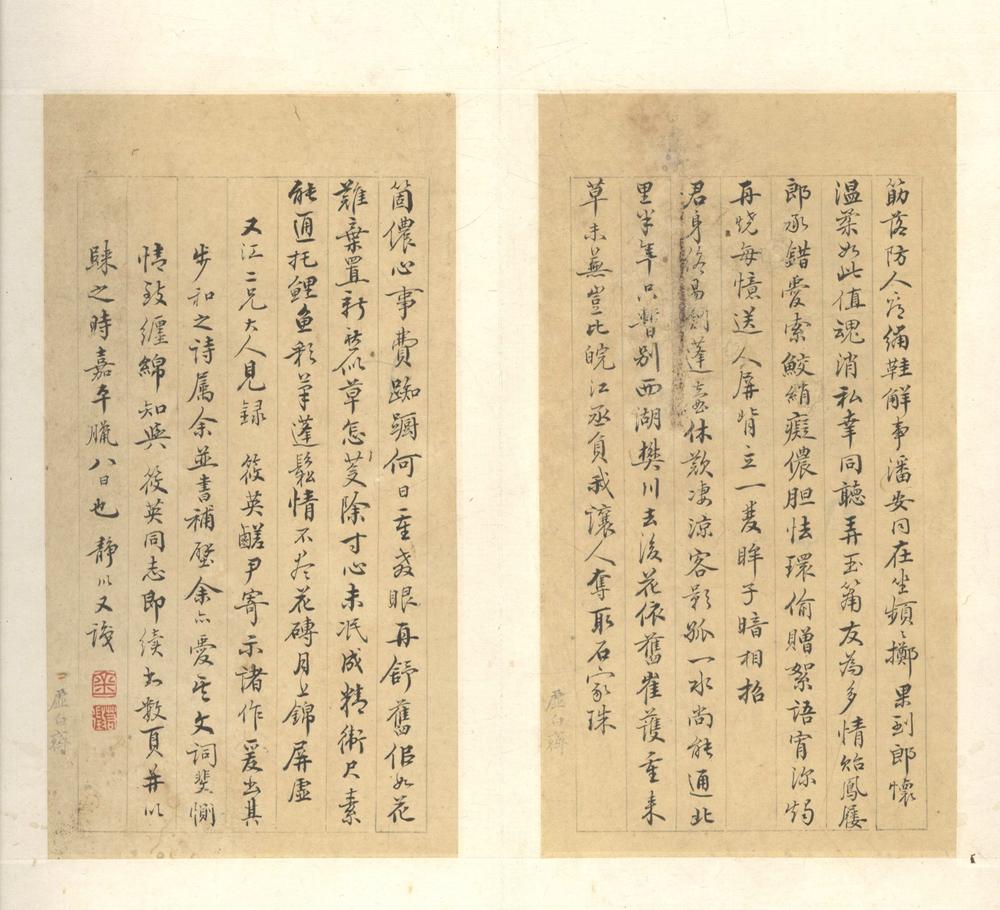 筯落防人見繡鞋解事潘安同在坐頻〻擲果到郎懷
溫柔如此值魂消私幸同聽弄玉簫友為多情貽鳳屨
郎承錯愛索鮫綃癡儂胆怯環偷贈絮語宵深燭
再燒每憶送人屏背立一雙眸子暗相招
君身修蓬壺休歎淒涼客影孤一水尚能通北
里半年只暫別西湖樊川去後花依舊崔護重來
草未蕪豈比皖江丞負我讓人奪取石家珠
箇儂心事費踟躕何日重教眼再舒舊侶如花
難棄置新愁似草怎芟除寸心未泯成精衛尺素
能通托鯉魚彩筆蓬鬆情不盡花磚月上錦屏虛
又江二兄大人見錄筱英鹺尹寄示諸作爰出其
步和之詩屬余並書補壁余亦愛其文詞斐惻
情致纏綿知與筱英同志即續書數頁并以
歸之時嘉平臘八日也靜以又識
虛白齋
虛白齋